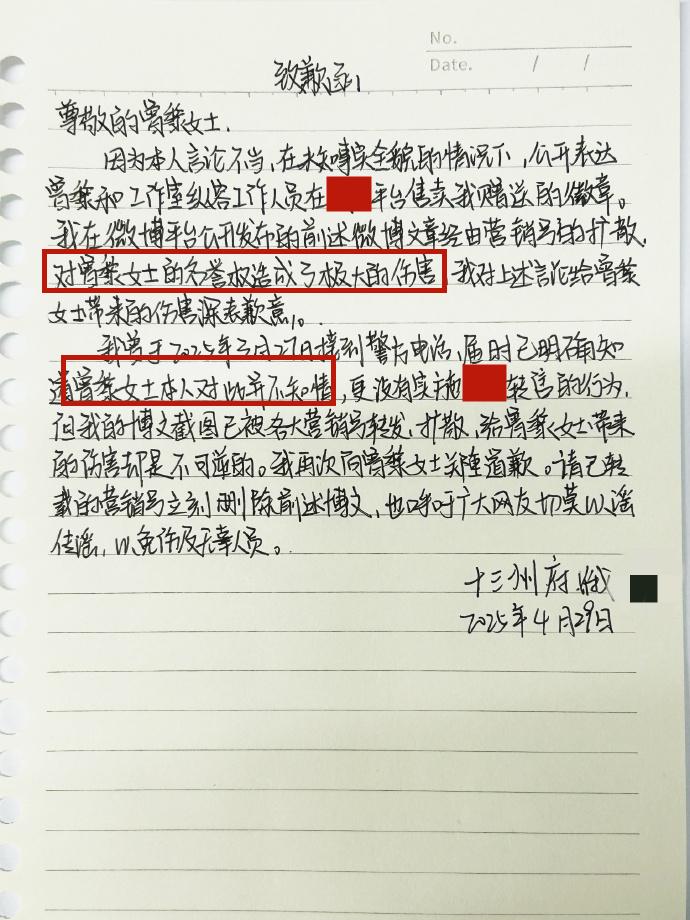 No.
Date. / /
致歉函
尊敬的曾黎女士.
因为本人言论不当,在未知事实全貌的情况下,公开表达
曾黎和工作室纵容工作人员在 平台售卖我赠送的徽章。
我在微博平台公开发布的前述微博文章经由营销号的扩散,
对曾黎女士的名誉权造成了极大的伤害 我对上述言论给曾黎
女士带来的伤害深表歉意。
我曾于2025年3月27日接到警方电话,届时已明确知
道曾黎女士本人对此并不知情,更没有实施 转售的行为,
但我的博文截图已被各大营销号转发、扩散,给曾黎女士带来
的伤害却是不可逆的。我再次向曾黎女士郑重道歉。请已转
载的营销号立刻删除前述博文,也呼吁广大网友切莫以谣
传谣,以免伤及无辜人员。
十三州府
2025年4月29日